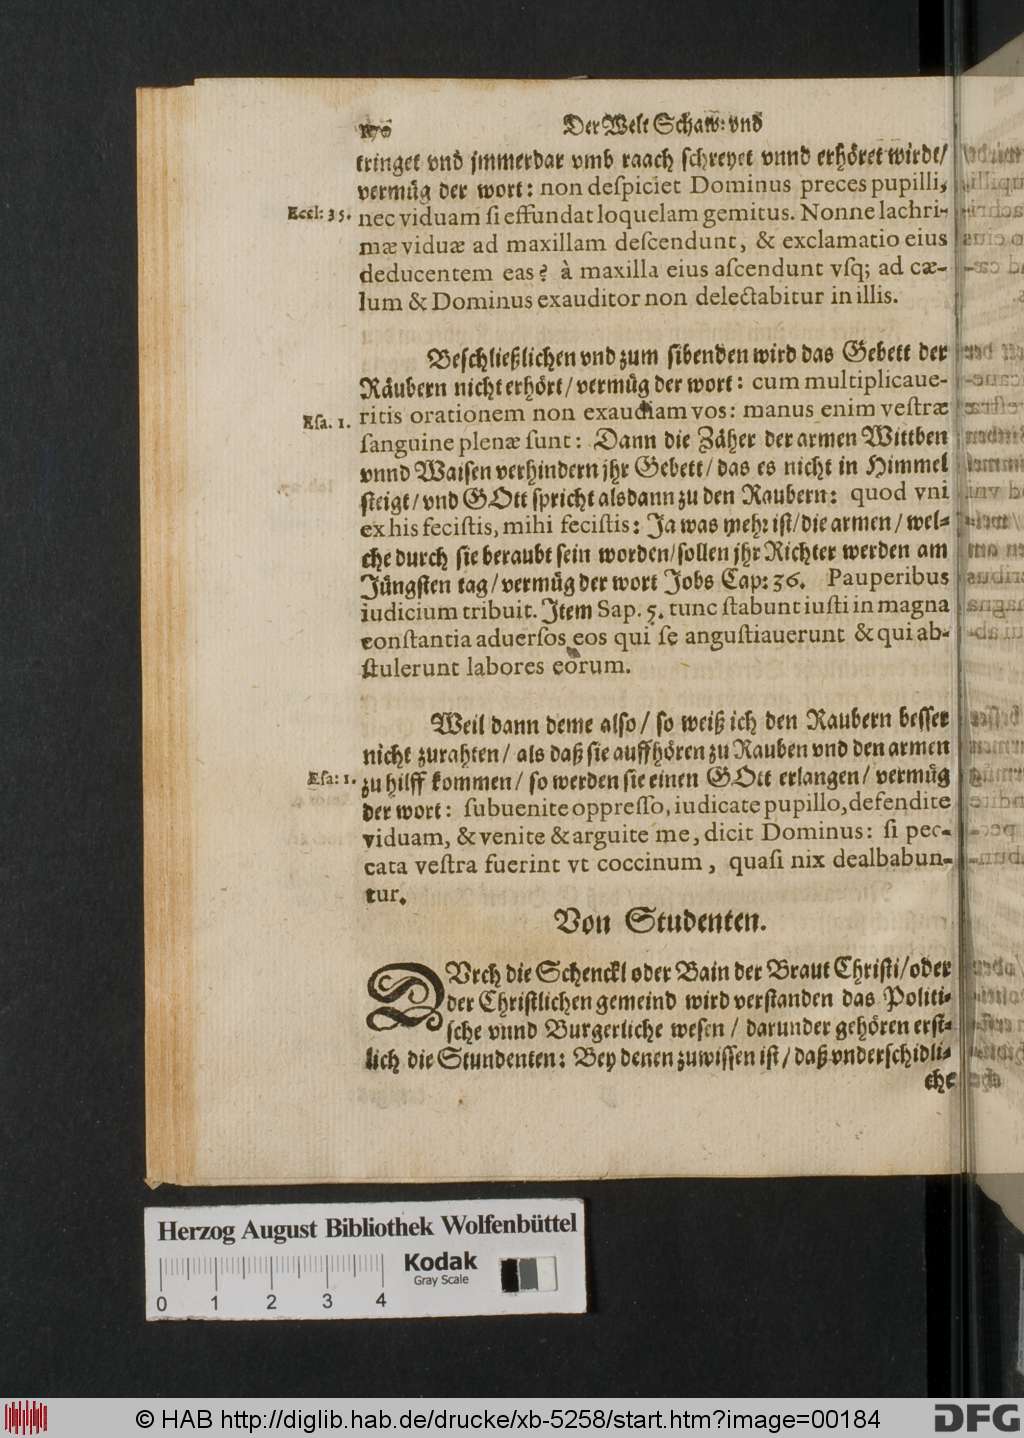 170 Der Welt Schaw: vnd
tringet vnd jmmerdar vmb raach schreyet vnnd erhöret wirdt/
vermüg der wort: non despiciet Dominus preces pupilli,
Eccl: 35. nec viduam si effundat loquelam gemitus. Nonne lachri-
mæ viduæ ad maxillam descendunt, & exclamatio eius
deducentem eas? à maxilla eius ascendunt vsq; ad cæ-
lum & Dominus exauditor non delectabitur in illis.
Beschließlichen vnd zum sibenden wird das Gebett der
Räubern nicht erhört/ vermüg der wort: cum multiplicaue-
Esa. 1. ritis orationem non exaudiam vos: manus enim vestræ
sanguine plenæ sunt: Dann die Zäher der armen Wittben
vnnd Waisen verhindern jhr Gebett/ das es nicht in Himmel
steigt/ vnd GOtt spricht alsdann zu den Raubern: quod vni
ex his fecistis, mihi fecistis: Ja was mehr ist/ die armen/ wel-
che durch sie beraubt sein worden/ sollen jhr Richter werden am
Jüngsten tag/ vermüg der wort Jobs Cap: 36. Pauperibus
iudicium tribuit. Item Sap. 5. tunc stabunt iusti in magna
constantia aduersos eos qui se angustiauerunt & qui ab-
stulerunt labores eorum.
Weil dann deme also/ so weiß ich den Raubern besser
nicht zurahten/ als daß sie auffhören zu Rauben vnd den armen
Esa: 1. zu hilff kommen/ so werden sie einen GOtt erlangen/ vermüg
der wort: subuenite oppresso, iudicate pupillo, defendite
viduam, & venite & arguite me, dicit Dominus: si pec-
cata vestra fuerint vt coccinum, quasi nix dealbabun-
tur.
Von Studenten.
DVrch die Schenckl oder Bain der Braut Christi/ oder
der Christlichen gemeind wird verstanden das Politi-
sche vnnd Burgerliche wesen/ darunder gehören erst-
lich die Stundenten: Bey denen zuwissen ist/ daß vnderschidli-
che
Herzog August Bibliothek Wolfenbüttel
Kodak
Gray Scale
0 1 2 3 4
© HAB http://diglib.hab.de/drucke/xb-5258/start.htm?image=00184
DFG